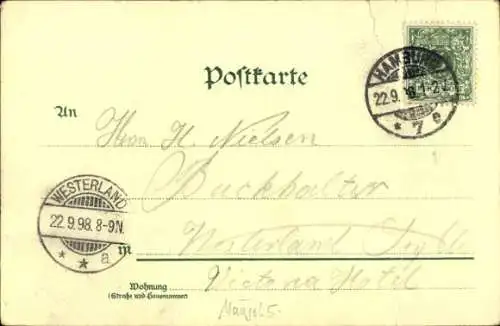 Postkarte
HAMBURG
22.9.98. 1-2N.
* 7 e
An
Herrn H. Nielsen
Buchhalter
WESTERLAND
22.9.98. 8-9N.
* * a
in Westerland Sylt
Victoria Hotel
Wohnung
(Straße und Hausnummer)